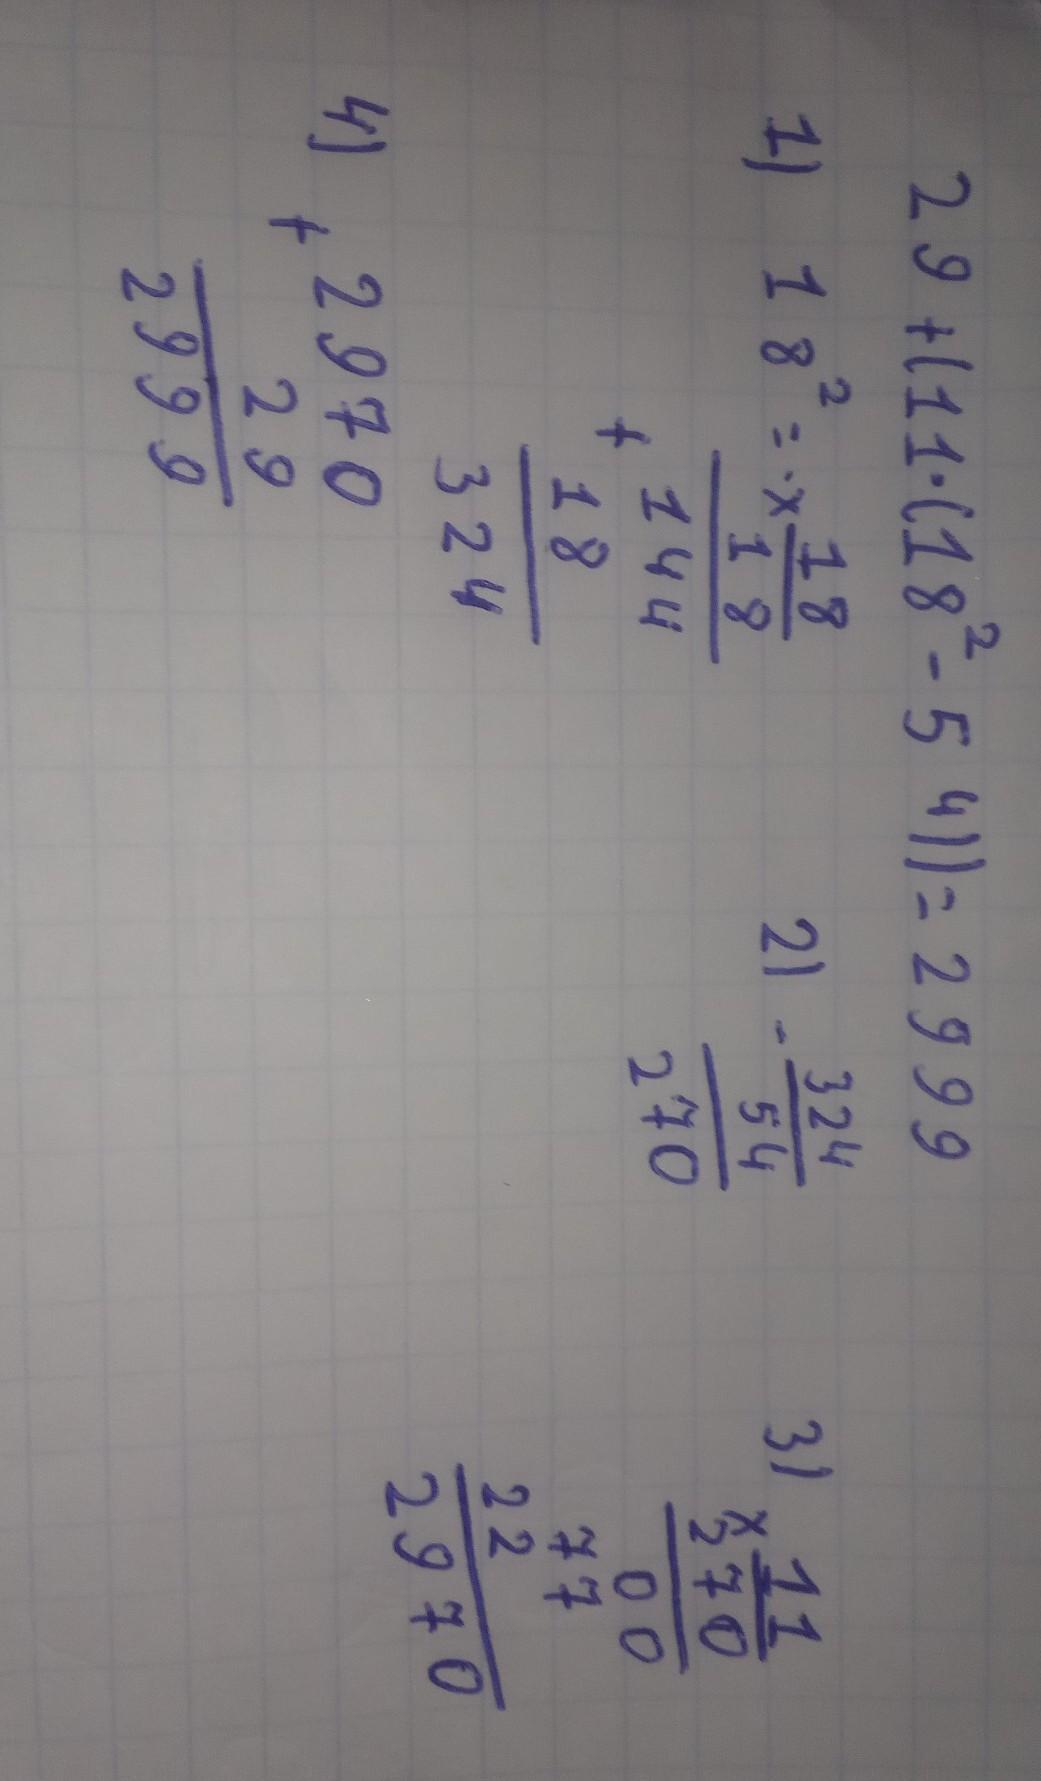 29+(11·(18²-54))=2999
1) 18²=·×18
18
144
+
18
324
2) -324
54
270
3) ×11
270
00
77
22
2970
4) +2970
29
2999